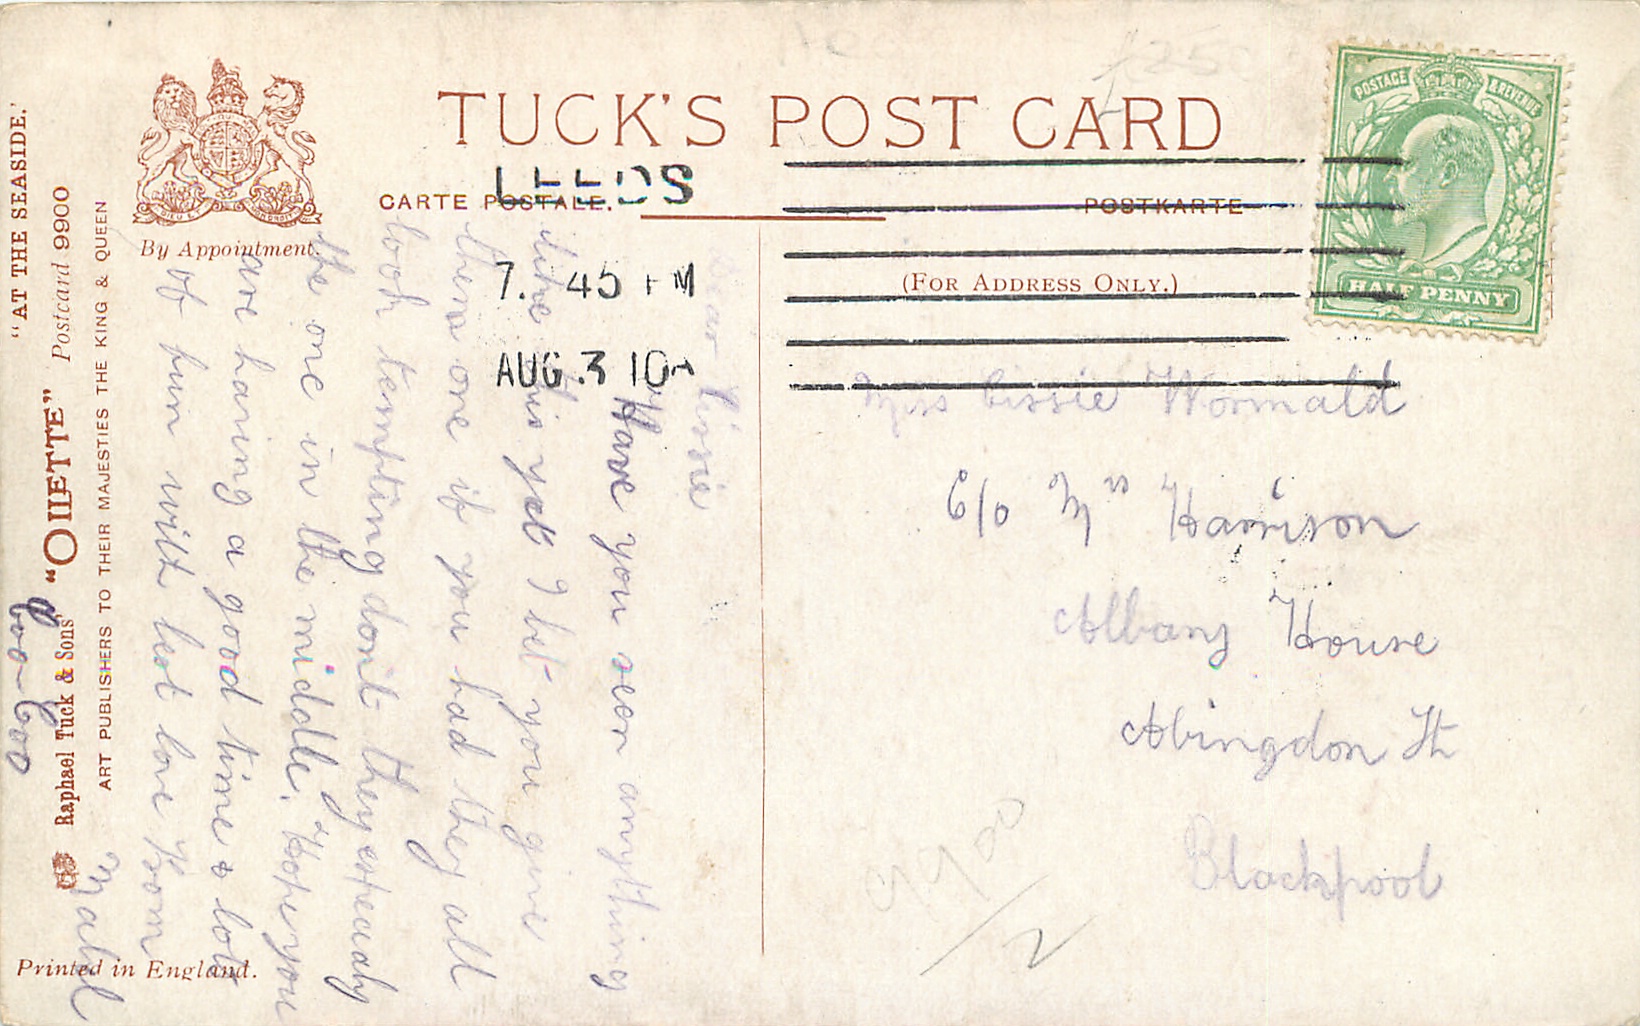 TUCK'S POST CARD
CARTE POSTALE.
POSTKARTE
(FOR ADDRESS ONLY.)
By Appointment.
LEEDS
7. 45 PM
AUG 3 10
POSTAGE & REVENUE
HALF PENNY
"AT THE SEASIDE."
Raphael Tuck & Sons' "OILETTE" Postcard 9900
ART PUBLISHERS TO THEIR MAJESTIES THE KING & QUEEN
Printed in England.
Dear Cissie
Have you seen anything
like this yet I bet you give
them one if you had they all
look tempting don't they especialy
the one in the middle. Hope you
are having a good time & lots
of fun with best love from
Mabel
Miss Cissie Wormald
C/o Mrs Harrison
Albany House
Abingdon St
Blackpool
9900
2
£250